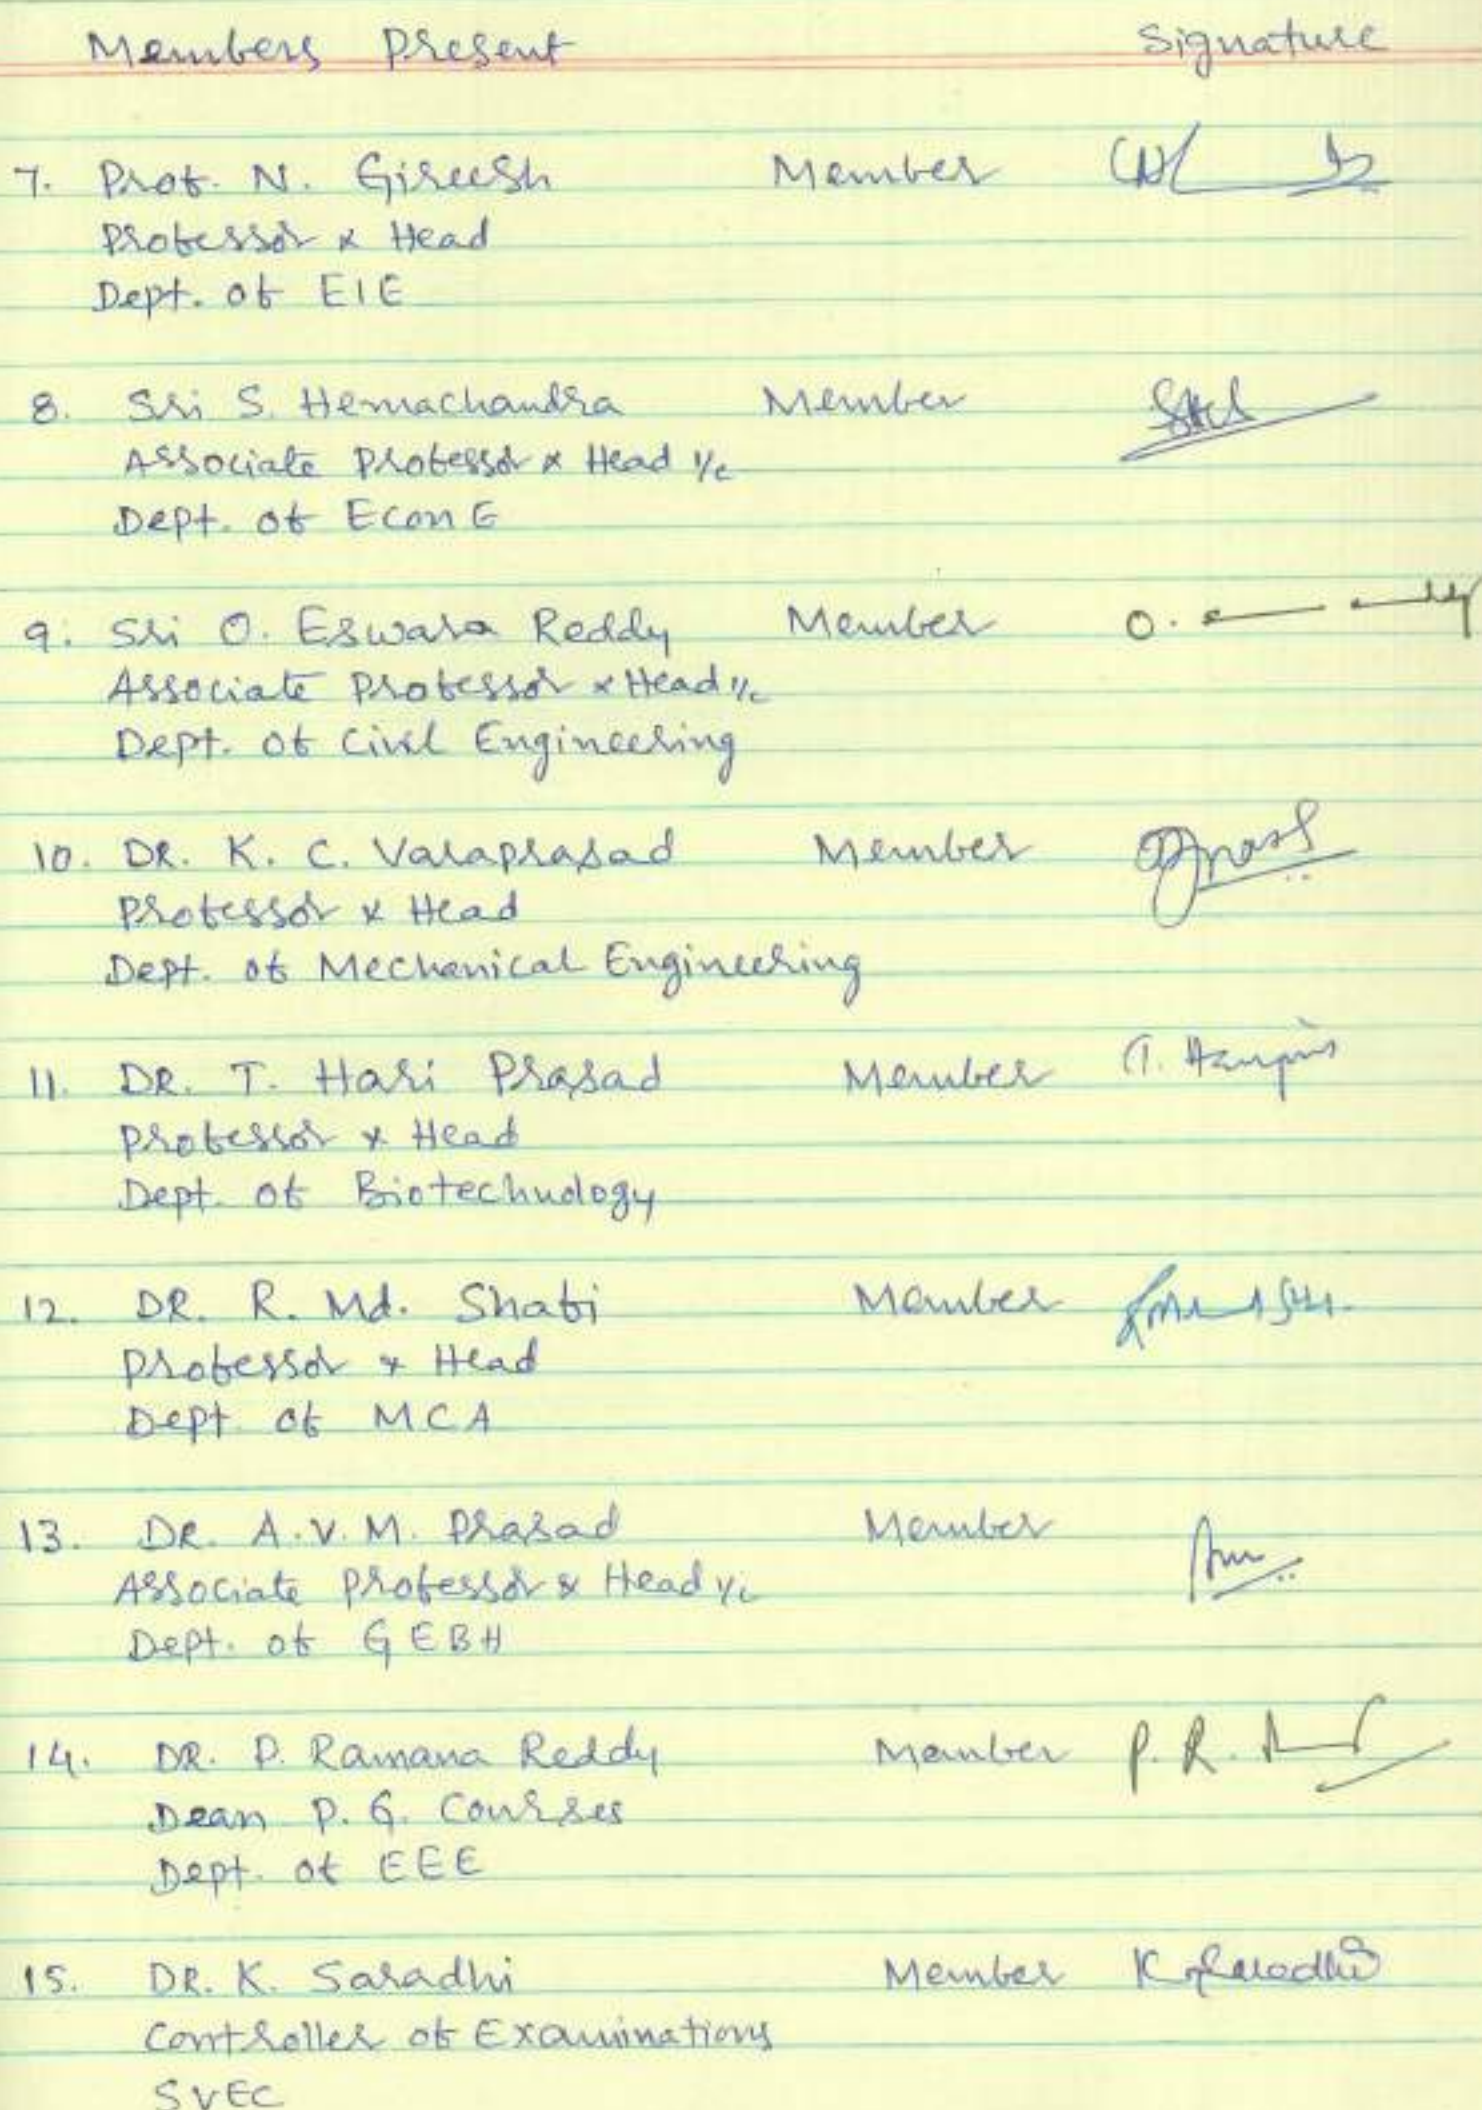 Members Present Signature
7. Prof. N. Gireesh Member
Professor & Head
Dept. of EIE
8. Sri S. Hemachandra Member
Associate Professor & Head i/c
Dept. of Econ E
9. Sri O. Eswara Reddy Member O.
Associate Professor & Head i/c
Dept. of Civil Engineering
10. DR. K. C. Varaprasad Member
Professor & Head
Dept. of Mechanical Engineering
11. DR. T. Hari Prasad Member
Professor & Head
Dept. of Biotechnology
12. DR. R. Md. Shafi Member
Professor & Head
Dept of MCA
13. DR. A.V.M. Prasad Member
Associate Professor & Head i/c
Dept. of GEBH
14. DR. P. Ramana Reddy Member P. R.
Dean P. G. Courses
Dept. of EEE
15. DR. K. Saradhi Member K Saradhi
Controller of Examinations
SVEC